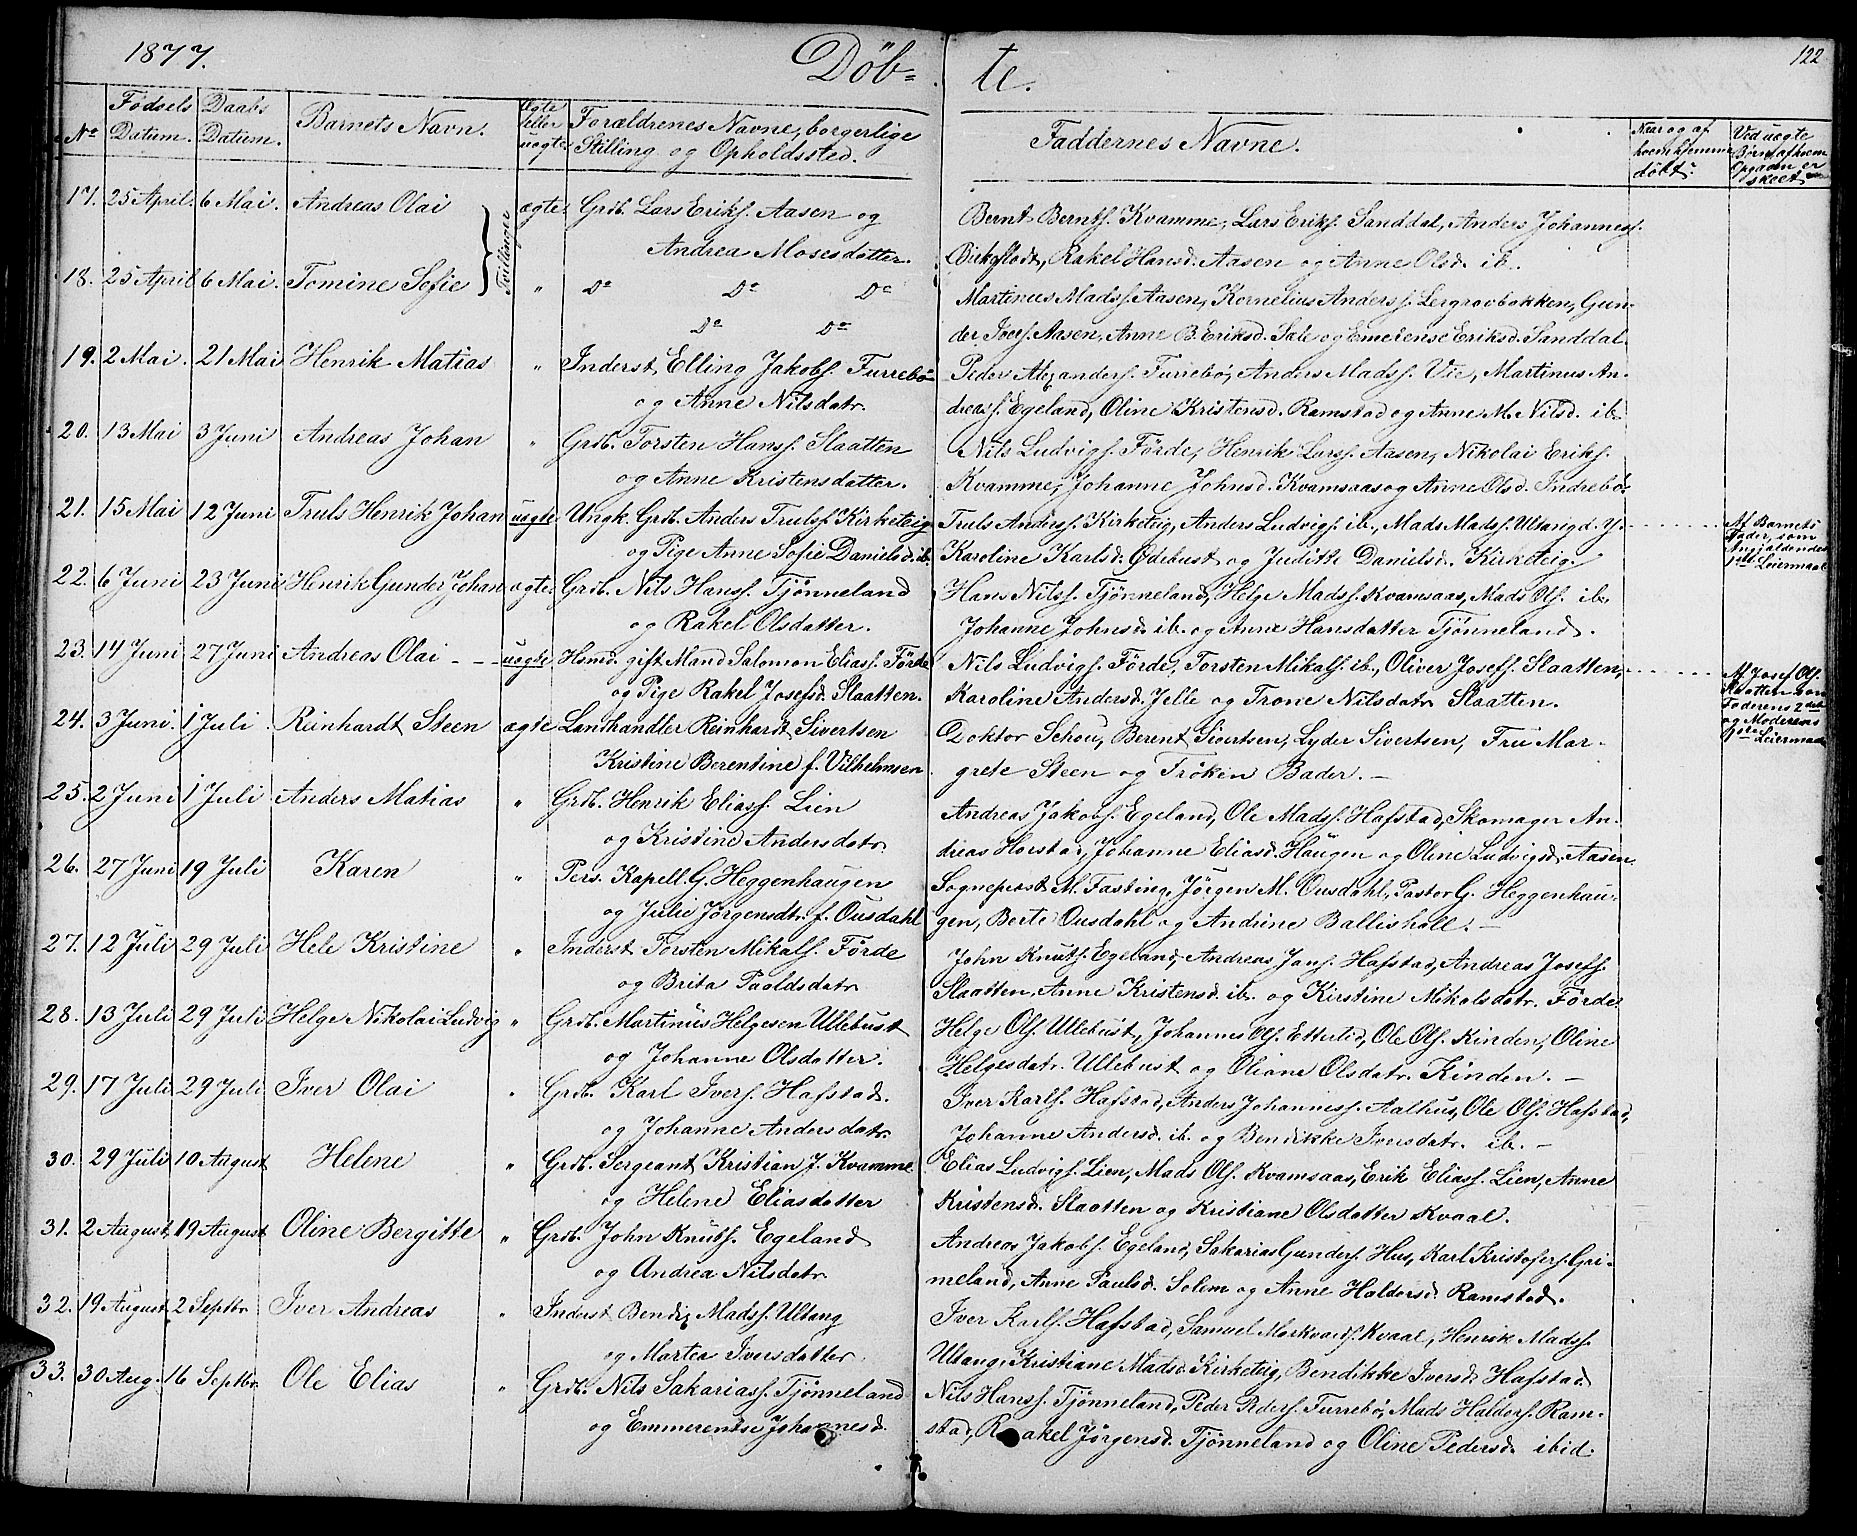 1877. Döb= te. 122
No Fødsels Datum. Daabs Datum. Barnets Navn. Ægte eller uægte Forældrenes Navne, borgerlige Stilling og Opholdssted. Faddernes Navne. Naar og af hvem hjemme döbt. Ved uægte Børn, af hvem Opgaven er skeet
17. 25 April. 6 Mai. Andreas Olai Tvillinger ægte. Grdb. Lars Eriks. Aasen og Bernt Bernts. Kvamme, Lars Eriks. Sanddal, Anders Johanness.
Andrea Mosesdatter. Birkeflodt, Rakel Hansd. Aasen og Anne Olsd. ib.
18. 25 April 6 Mai. Tomine Sefie " Do Do Do Martinus Madss. Aasen, Kornelius Anderss. Lergrovbakken, Gun-
Do Do der Joes. Aasen, Anne B. Eriksd. Sale og Emerense Eriksd. Sanddal.
19. 2 Mai. 21 Mai Henrik Matias " Inderst, Elling Jakobs. Furrebö Peder Alexanders. Furrebö, Anders Madss. Vie, Martinus An-
og Anne Nilsdatr. dreass. Egeland, Oline Kristensd. Ramstad og Anne M. Nilsd. ib.
20. 13 Mai 3 Juni Andreas Johan " Grdb. Torsten Hanss. Slaatten Nils Ludvigs. Förde, Henrik Larss. Aasen, Nikolai Eriks.
og Anne Kristensdatter. Kvamme, Johanne Johnsd. Kvamsaas og Anne Olsd. Indrebö.
21. 15 Mai 12 Juni Truls Henrik Johan uægte Ungk. Grdb. Anders Trulss. Kirketeig Truls Anderss. Kirketeig, Anders Ludvigs. ib., Mads Madss. Ultang d. y. Af Barnets Fader, som
og Pige Anne Sofie Danielsd. ib. Karoline Karlsd. Ødebust og Judithe Danielsd. Kirketeig. 1ste Leiermaal
22. 6 Juni 23 Juni Henrik Gunder Johan ægte. Grdb. Nils Hanss. Tjönneland Hans Nilss. Tjönneland, Helge Madss. Kvamsaas, Mads Ols. ib.
og Rakel Olsdatter. Johanne Johnsd. ib. og Anne Hansdatter Tjönneland.
23. 14 Juni 27 Juni Andreas Olai uægte Hsmd. gift Mand Salomon Eliass. Förde Nils Ludvigs. Förde, Torsten Mikals. ib., Oliver Josefs. Slaatten, Af Josef Ols. Slaatten som
og Pige Rakel Josefsd. Slaatten. Karoline Andersd. Jelle og Trone Nilsdatr. Slaatten. Faderens 2det og Moderens
24. 3 Juni. 1 Juli. Reinhardt Steen ægte Landhandler Reinhardt Sivertsen Doktor Schou, Berent Sivertsen, Lyder Sivertsen, Fru Mar- 1ste Leiermaal
Kristine Berentine f. Vilhelmsen grete Steen og Fröken Bader.
25. 2 Juni 1 Juli Anders Matias " Grdb. Henrik Eliass. Lien Andreas Jakobs. Egeland, Ole Madss. Hafstad, Skomager An-
og Kristine Andersdatr. dreas Horstad, Johanne Eliasd. Haugen og Oline Ludvigsd. Aasen.
26. 27 Juni 19 Juli Karen " Pers. Kapell. G. Heggenhaugen Sogneprest M. Fasting, Jörgen M. Ousdahl, Pastor G. Heggenhau-
og Julie Jörgensdtr. f. Ousdahl gen, Berte Ousdahl og Andrine Ballishall.
27. 12 Juli 29 Juli Hele Kristine " Inderst Torsten Mikals. Förde John Knuts. Egeland, Andreas Jans. Hafstad, Andreas Josefs.
og Brita Paoldsdatr. Slaatten, Anne Kristensd. ib. og Kirstine Mikalsdatr. Förde.
28. 13 Juli 29 Juli Helge Nikolai Ludvig " Grdb. Martinus Helgesen Ullebust Helge Ols. Ullebust, Johannes Ols. Etterlid, Ole Ols. Kinden, Oline
og Johanne Olsdatter. Helgesdatr. Ullebust og Oliane Olsdatr. Kinden.
29. 17 Juli 29 Juli Iver Olai " Grdb. Karl Ivers. Hafstad. Iver Karls. Hafstad, Anders Johanness. Aalhus, Ole Ols. Hafstad,
og Johanne Andersdatr. Johanne Andersd. ib. og Bendikke Iversdatr. ib.
30. 29 Juli 10 August Helene " Grdb. Sergeant Kristian J. Kvamme Elias Ludvigs. Lien, Mads Ols. Kvamsaas, Erik Eliass. Lien, Anne
og Helene Eliasdatter Kristensd. Slaatten og Kristiane Olsdatter Kvaal.
31. 2 August 19 August Oline Bergitte " Grdb. John Knuts. Egeland Andreas Jakobs. Egeland, Sakarias Gunders. Hus, Karl Kristofers. Gri-
og Andrea Nilsdatr. meland, Anne Paulsd. Solem og Anne Haldorsd. Ramstad.
32. 19 August 2 Septbr Iver Andreas " Inderst Bendix Madss. Ultang Iver Karls. Hafstad, Samuel Markvards. Kvaal, Henrik Madss.
og Martea Iversdatter. Ultang, Kristiane Madsd. Kirketeig, Bendikke Iversd. Hafstad.
33. 30 Aug. 16 Septbr. Ole Elias " Grdb. Nils Sakariass. Tjönneland Nils Hanss. Tjönneland, Peder Peders. Furrebö, Mads Haldors. Ram-
og Emmerentse Johannesd. stad, Raakel Jörgensd. Tjönneland og Oline Pedersd. ibid.